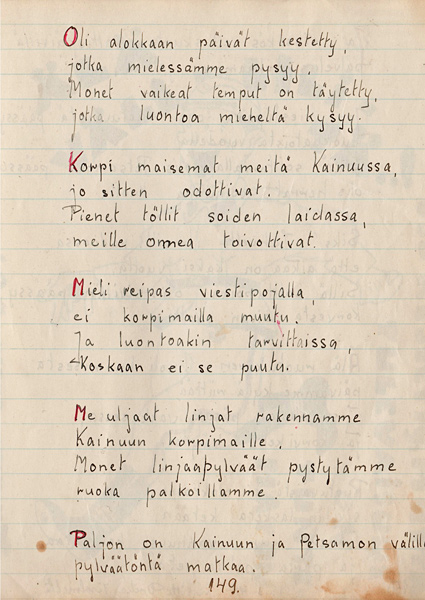 Oli alokkaan päivät kestetty,
jotka mielessämme pysyy.
Monet vaikeat temput on täytetty,
jotka luontoa mieheltä kysyy.
Korpi maisemat meitä Kainuussa,
jo sitten odottivat.
Pienet töllit soiden laidassa,
meille onnea toivottivat.
Mieli reipas viestipojalla,
ei korpimailla muutu.
Ja luontoakin tarvittaissa,
Koskaan ei se puutu.
Me uljaat linjat rakennamme
Kainuun korpimaille.
Monet linjaapylväät pystytämme
ruoka palkoillamme.
Paljon on Kainuun ja Petsamon välillä
pylväätöntä matkaa.
149.